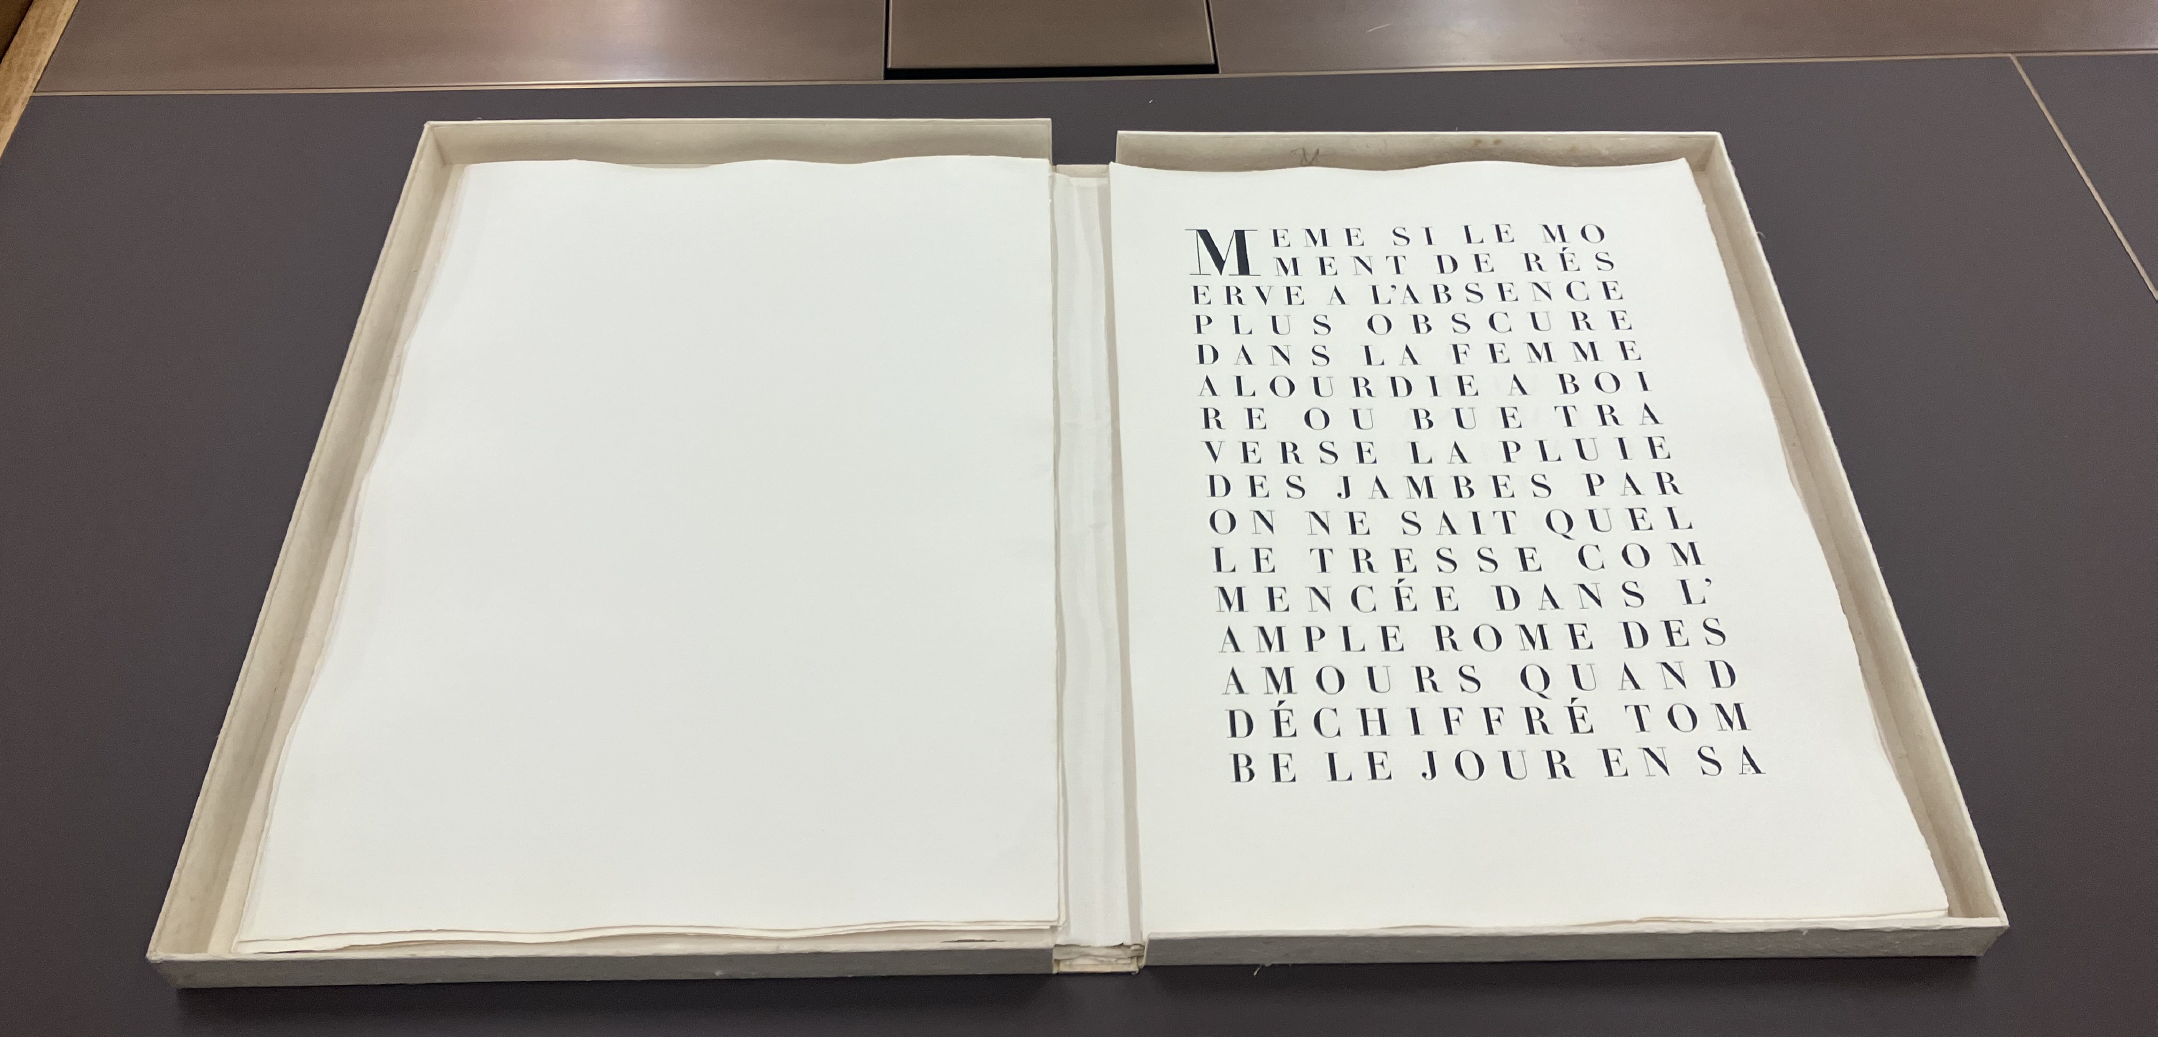 MEME SI LE MO
MENT DE RÉS
ERVE A L'ABSENCE
PLUS OBSCURE
DANS LA FEMME
ALOURDIE A BOI
RE OU BUE TRA
VERSE LA PLUIE
DES JAMBES PAR
ON NE SAIT QUEL
LE TRESSE COM
MENCÉE DANS L'
AMPLE ROME DES
AMOURS QUAND
DÉCHIFFRÉ TOM
BE LE JOUR EN SA